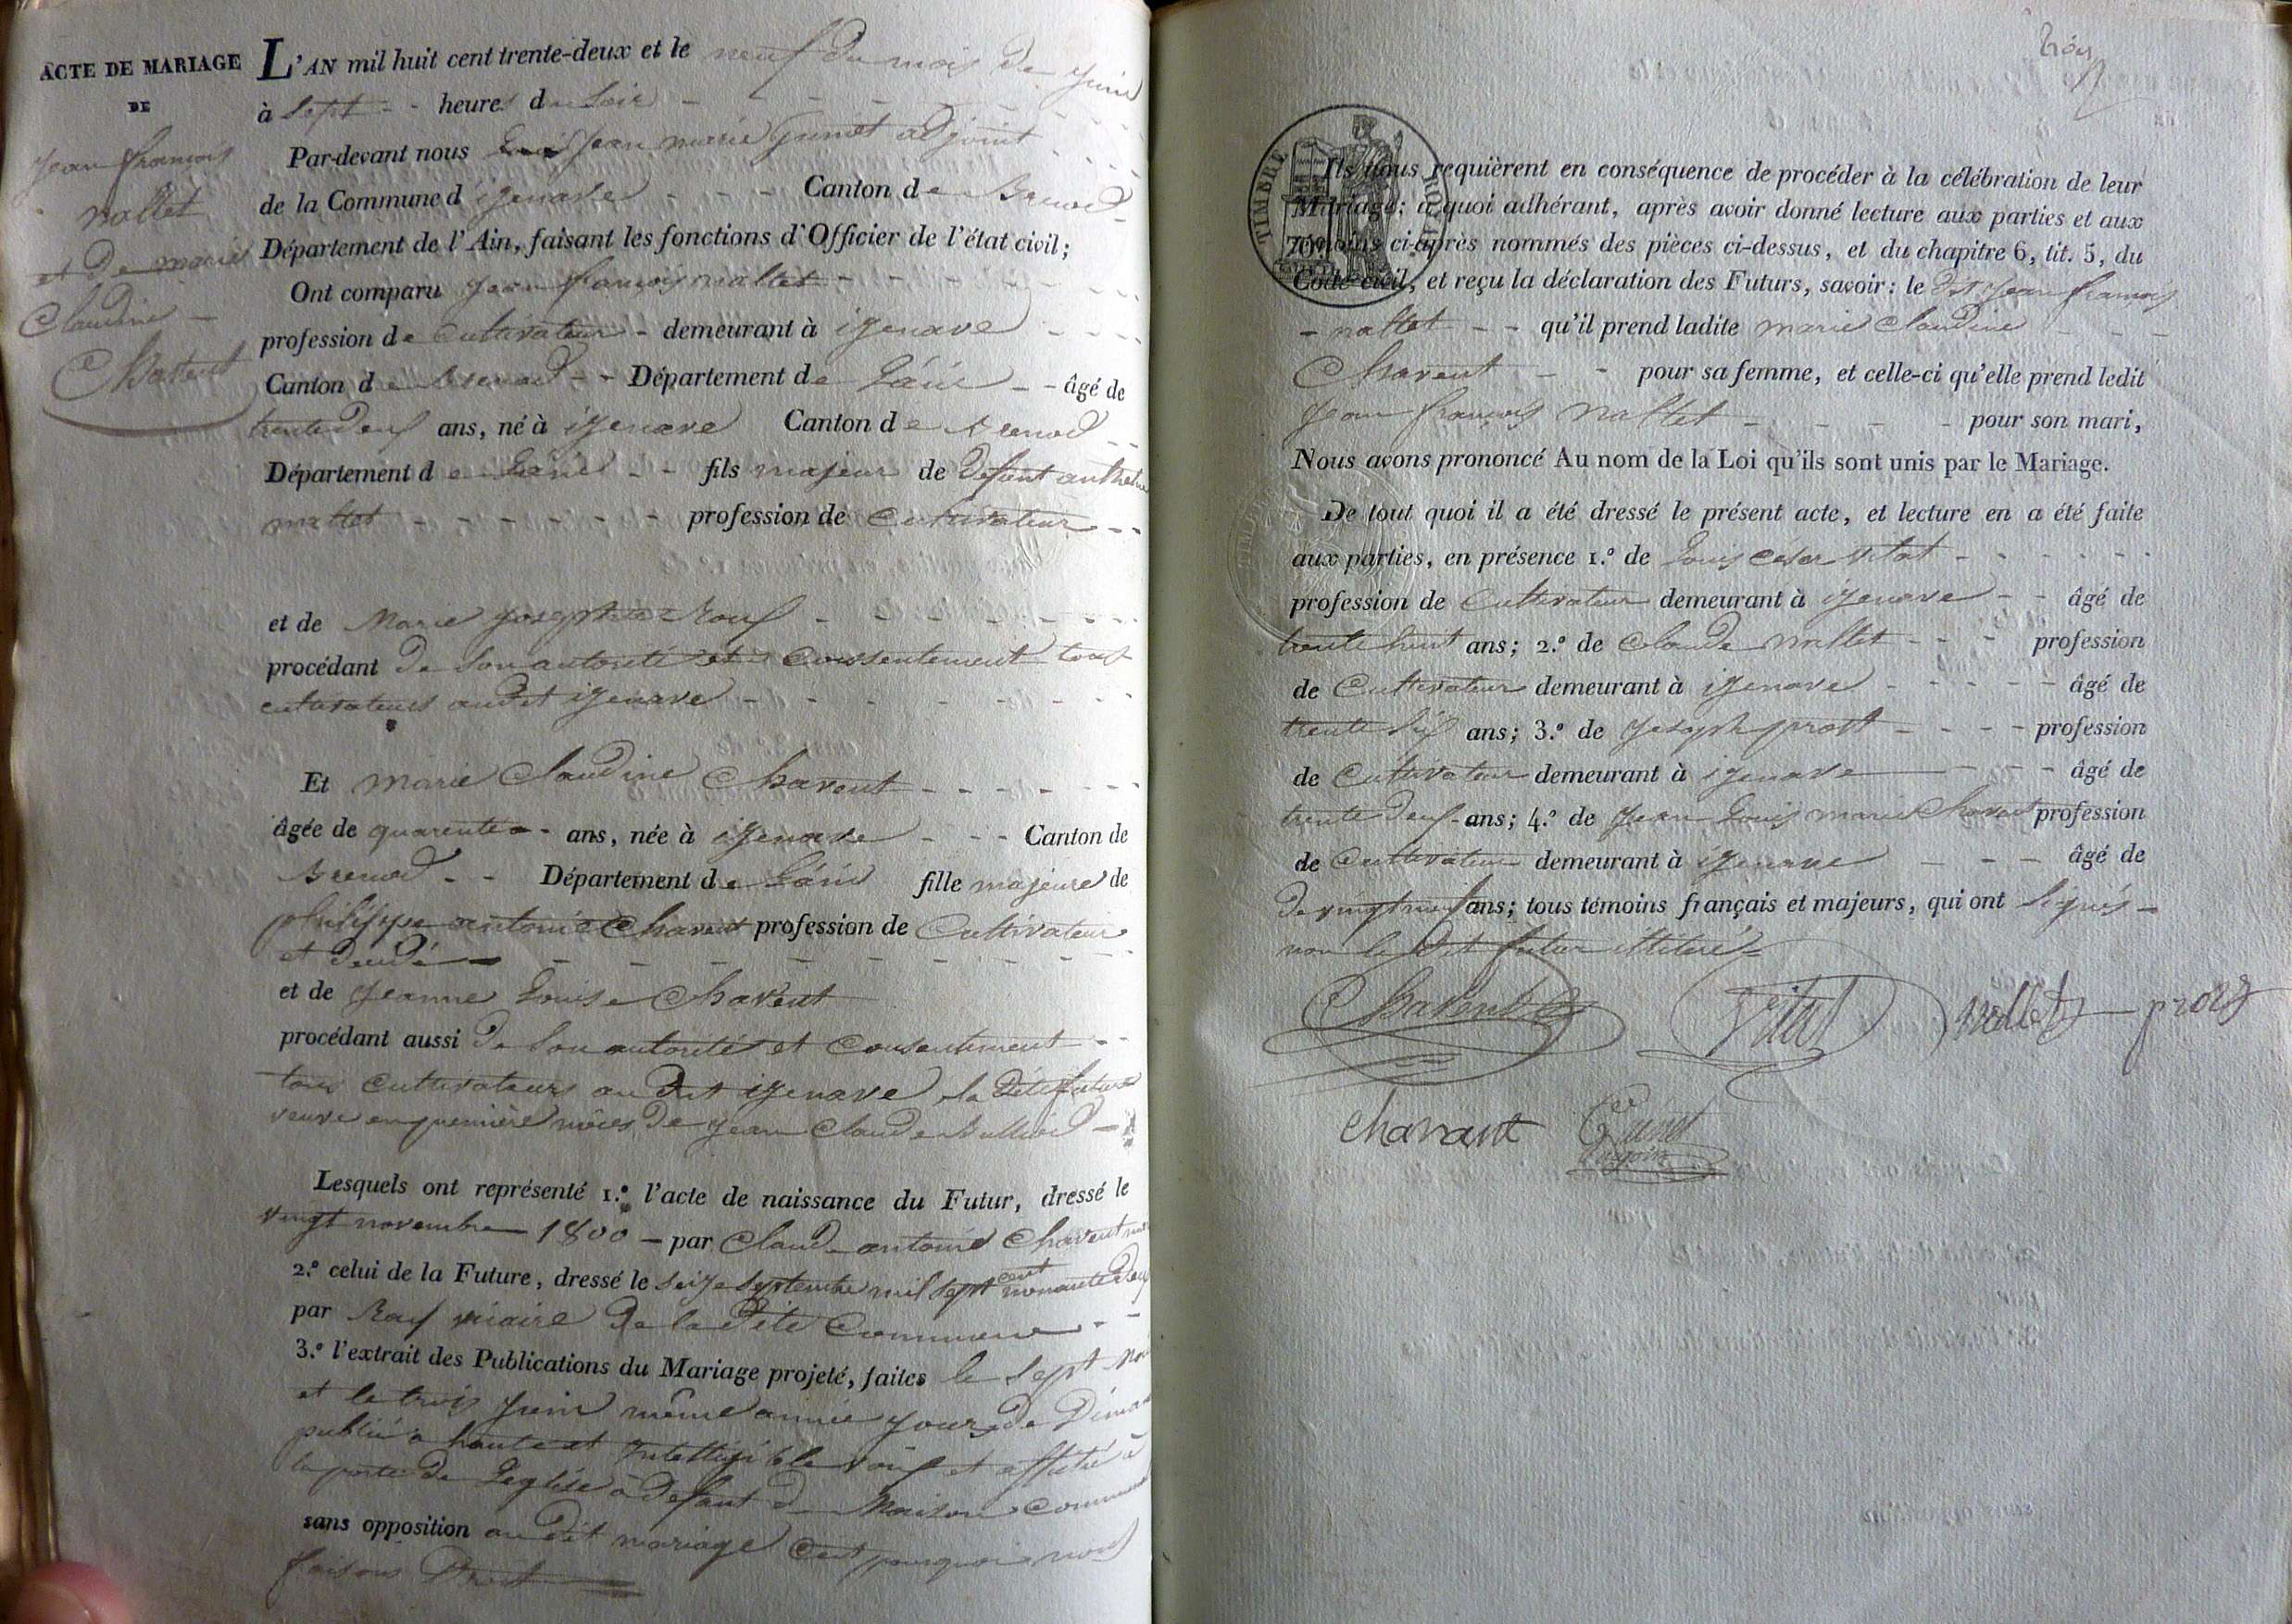 ACTE DE MARIAGE
DE
jean françois
nallet
et de marie
Claudine
Chavent
L'AN mil huit cent trente-deux et le neuf du mois de juin
à sept - - heures du soir - - - -
Par-devant nous jean marie Gunet adjoint
de la Commune d'izenave - - - Canton de Brenod
Département de l'Ain, faisant les fonctions d'Officier de l'état civil;
Ont comparu jean françois nallet - - -
profession de Cultivateur - demeurant à izenave
Canton de Brenod - - Département de L'ain - - âgé de
trente deux ans, né à izenave Canton de Brenod
Département de L'ain - - fils majeur de defunt anthelme
nallet - - - - - - profession de Cultivateur - -
et de Marie josephte Rouf - - - -
procédant de son autorité et Consentement tous
cultivateurs audit izenave - - - -
Et marie Claudine Chavent - - - - -
âgée de quarente - ans, née à izenave - - - Canton de
Brenod - - Département de L'ain fille majeure de
philippe antoine Chavent profession de Cultivateur
et de - - - -
et de jeanne Louise Chavent
procédant aussi de son autorité et Consentement - -
tous cultivateurs au dit izenave, la dite future
veuve en première nôces de jean Claude Bulliod -
Lesquels ont représenté 1.º l'acte de naissance du Futur, dressé le
vingt novembre 1800 - par Claude antoine Chavent
2.º celui de la Future, dressé le seize septembre mil sept cent nonante deux
par Rouf maire de la dite Commune - -
3.º l'extrait des Publications du Mariage projeté, faites le sept
et le trois juin même année jour de Dima
publié à haute et Intelligible voix et affiché à
la porte de L'eglise à defaut de Maison Commune
sans opposition au dit mariage C'est pourquoi nous
faisons Droit
trois
TIMBRE ROYAL
Ils nous requièrent en conséquence de procéder à la célébration de leur
Mariage; à quoi adhérant, après avoir donné lecture aux parties et aux
témoins ci-après nommés des pièces ci-dessus, et du chapitre 6, tit. 5, du
Code civil, et reçu la déclaration des Futurs, savoir: le dit jean françois
- nallet - - qu'il prend ladite marie Claudine - -
Chavent - - pour sa femme, et celle-ci qu'elle prend ledit
jean françois nallet - - - - pour son mari,
Nous avons prononcé Au nom de la Loi qu'ils sont unis par le Mariage.
De tout quoi il a été dressé le présent acte, et lecture en a été faite
aux parties, en présence 1.º de Louis César Vitat - - - -
profession de Cultivateur demeurant à izenave - - âgé de
trente huit ans; 2.º de Claude nallet - - - profession
de Cultivateur demeurant à izenave - - - - - âgé de
trente six ans; 3.º de joseph prost - - - - profession
de Cultivateur demeurant à izenave - - - âgé de
trente deux - ans; 4.º de jean Louis marie Chavent profession
de Cultivateur demeurant à izenave - - - âgé de
de vingt neuf ans; tous témoins français et majeurs, qui ont signés -
non le dit futur illitéré
Chavent Vitat nallet prost
chavant Gunet
adjoint